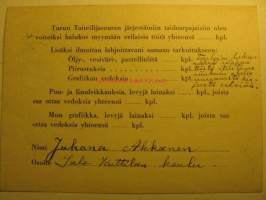 Turun Taiteilijaseuran järjestämiin taidearpajaisiin olen
voitoiksi halukas myymään erilaisia töitä yhteensä ........ kpl.
Lisäksi ilmoitan lahjoittavani samaan tarkoitukseen:
Öljy-, vesiväri-, pastellitöitä ........ kpl.
Piirustuksia ........ kpl.
Grafiikan vedoksia ........ kpl.
Puu- ja linoleikkauksia, levyjä lainaksi ........ kpl., joista
saa ottaa vedoksia yhteensä ........ kpl.
Muu grafiikka, levyjä lainaksi ........ kpl., joista saa
ottaa vedoksia yhteensä ........ kpl.
Nimi Juhana Akkanen
Osoite Salo